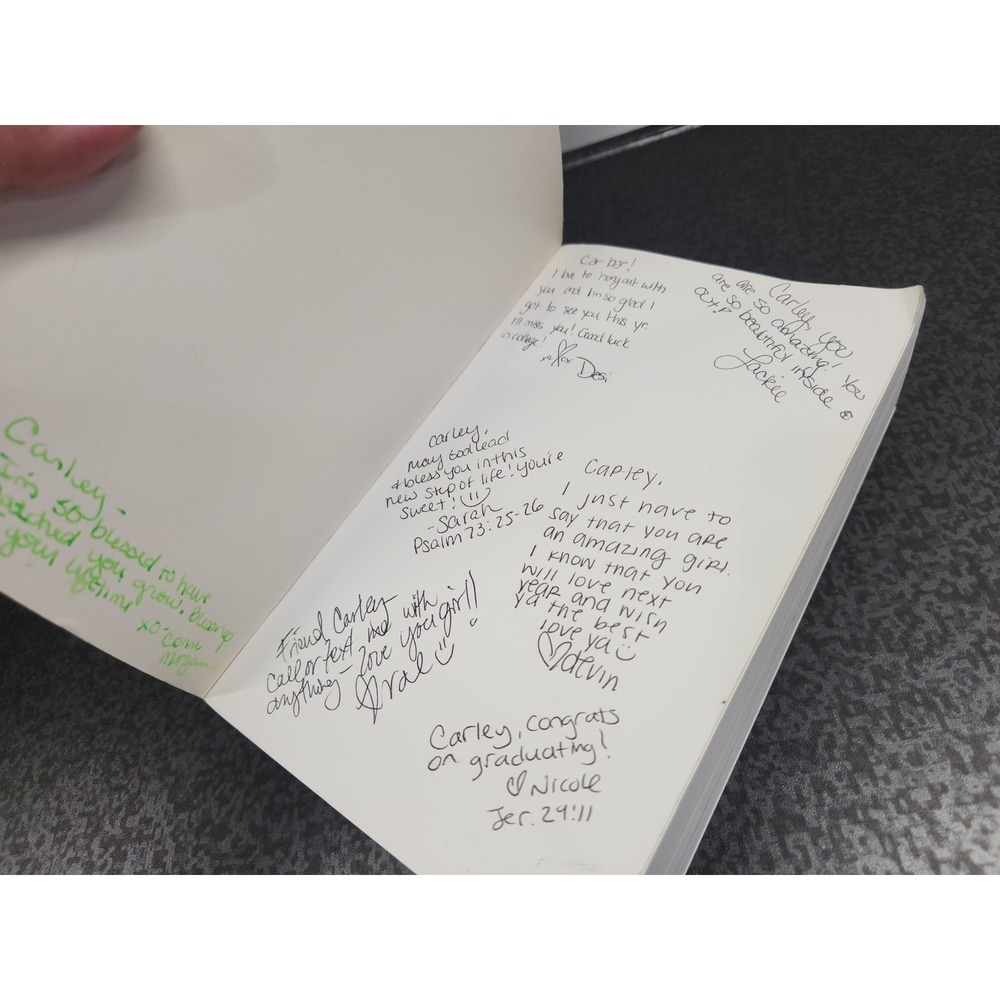 Carley -
I'm so blessed to have
watched you grow,
your
xo
Car bar!
I love to hang out with
you and I'm so glad I
got to see you this yr.
I'll miss you! Good luck
in college!
xoxox Desi
Carley, you
are so amazing! You
are so beautiful inside &
out!
Jackie
Carley,
may God lead
& bless you in this
new step of life! You're
sweet!
-Sarah
Psalm 73:25-26
Carley,
I just have to
say that you are
an amazing girl.
I know that you
will love next
year and wish
ya the best
love ya
Friend, Carley
call or text me with
anything love you girl!
Carley, congrats
on graduating!
Nicole
Jer. 29:11